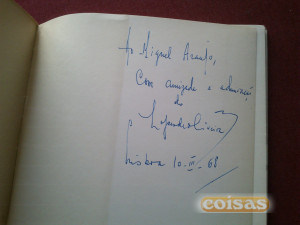 Ao Miguel Araujo,
Com amizade e admiração
do
Lisboa 10-III-68
coisas